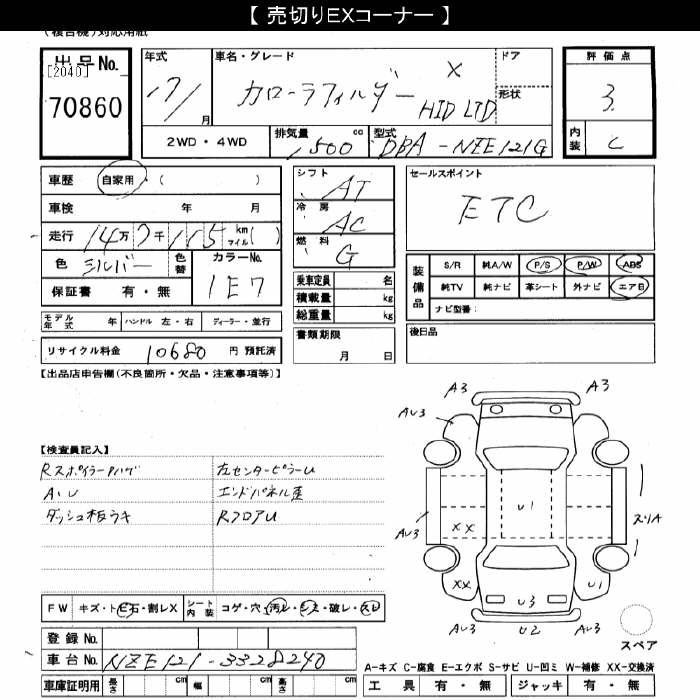 【 売切りEXコーナー 】
(複合機)対応用紙
出品No.
[2040]
70860
年式 17/ 月
車名・グレード カローラフィルダー X HID LTD
ドア
形状
評価点 3
内装 C
2WD・4WD
排気量 1500 cc
型式 DBA-NZE121G
車歴 自家用・( )
車検 年 月
走行 14万7千115 km マイル( )
色 シルバー 色替
カラーNo. 1E7
保証書 有・無
シフト AT
冷房 AC
燃料 G
乗車定員 名
積載量 kg
総重量 kg
セールスポイント
ETC
装備品
S/R 純A/W P/S P/W ABS
純TV 純ナビ 革シート 外ナビ エアB
ナビ型番:
モデル年式 年 ハンドル 左・右 ディーラー・並行
書類期限 月 日
後日品
リサイクル料金 10680 円 預託済
【出品店申告欄(不良箇所・欠品・注意事項等)】
A3 A3
AU3
【検査員記入】
RスポイラーPハゲ 左センターピラーU
A.U エンドパネル歪
ダッシュ板ウキ RフロアU
U1
XX
AU3
スリA
XX
U1
U3
AU3 U2 AU3
スペア
FW キズ・ト
石・割レX シート内装 コゲ・穴・汚レ・シミ・破レ・スレ
登録No.
車台No. NZE121-3328240
車庫証明用 長さ cm 幅 cm 高さ cm
A-キズ C-腐食 E-エクボ S-サビ U-凹ミ W-補修 XX-交換済
工具 有・無 ジャッキ 有・無